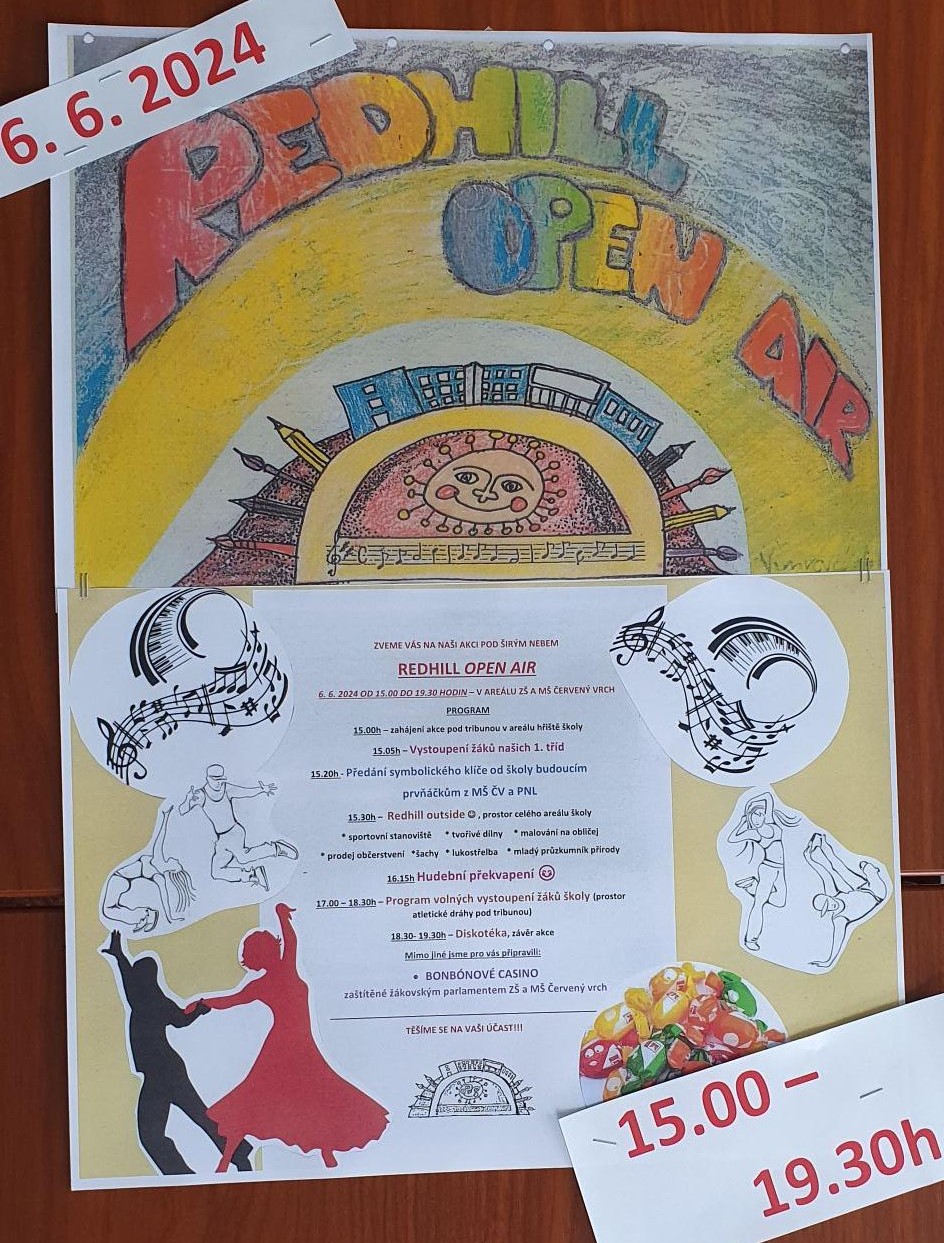 6. 6. 2024
REDHILL
OPEN
AIR
ZVEME VÁS NA NAŠI AKCI POD ŠIRÝM NEBEM
REDHILL OPEN AIR
6. 6. 2024 OD 15.00 DO 19.30 HODIN – V AREÁLU ZŠ A MŠ ČERVENÝ VRCH
PROGRAM
15.00h – zahájení akce pod tribunou v areálu hřiště školy
15.05h – Vystoupení žáků našich 1. tříd
15.20h - Předání symbolického klíče od školy budoucím
prvňáčkům z MŠ ČV a PNL
15.30h – Redhill outside ☺, prostor celého areálu školy
* sportovní stanoviště * tvořivé dílny * malování na obličej
* prodej občerstvení *šachy * lukostřelba * mladý průzkumník přírody
16.15h Hudební překvapení ☺
17.00 – 18.30h – Program volných vystoupení žáků školy (prostor
atletické dráhy pod tribunou)
18.30- 19.30h – Diskotéka, závěr akce
Mimo jiné jsme pro vás připravili:
• BONBÓNOVÉ CASINO
zaštítěné žákovským parlamentem ZŠ a MŠ Červený vrch
TĚŠÍME SE NA VAŠI ÚČAST!!!
15.00 –
19.30h